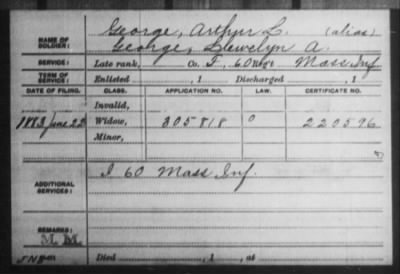 NAME OF SOLDIER: George, Arthur L. (alias)
George, Llewelyn A.
SERVICE: Late rank, Co. I, 60 Reg't Mass Inf
TERM OF SERVICE: Enlisted , 1 Discharged , 1
DATE OF FILING. CLASS. APPLICATION NO. LAW. CERTIFICATE NO.
Invalid,
1883 June 22 Widow, 305818 0 220596
Minor,
ADDITIONAL SERVICES: I 60 Mass Inf.
REMARKS: M. M.
Died , 1 , at